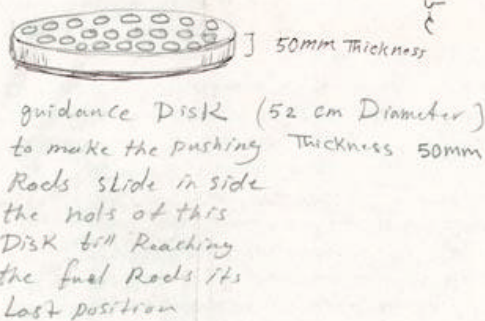 c
] 50mm Thickness
guidance Disk (52 cm Diameter)
to make the pushing Thickness 50mm
Rods slide in side
the hols of this
Disk till Reaching
the fuel Rods its
Last position